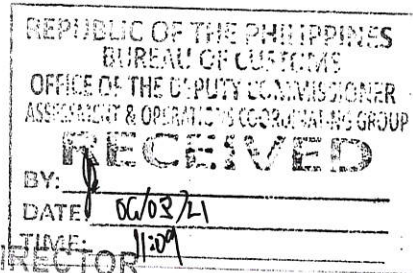 REPUBLIC OF THE PHILIPPINES
BUREAU OF CUSTOMS
OFFICE OF THE DEPUTY COMMISSIONER
ASSESSMENT & OPERATIONS COORDINATING GROUP
RECEIVED
BY:
DATE 06/03/21
TIME: 11:09
IRECTOR